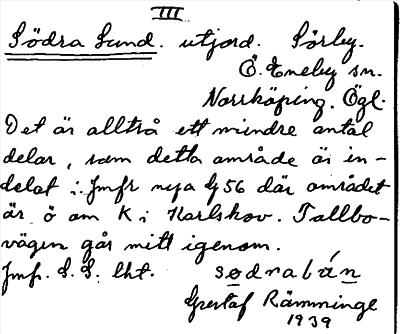 III
Södra Sund. utjord. Sörby.
Ö. Eneby sn.
Norrköping. Ögl.
Det är alltså ett mindre antal
delar, som detta område är in-
delat i. Jmfr nya 56 där området
är ö om K i Karlshov. Tallbo-
vägen går mitt igenom.
Jmf. S.S. lht. sødrabán
Gustaf Rämminge
1939